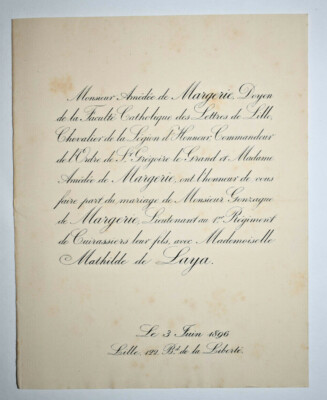 Monsieur Amédée de Margerie, Doyen
de la Faculté Catholique des Lettres de Lille,
Chevalier de la Légion d'Honneur, Commandeur
de l'Ordre de St. Grégoire le Grand et Madame
Amédée de Margerie, ont l'honneur de vous
faire part du mariage de Monsieur Gonzague
de Margerie, Lieutenant au 1er Régiment
de Cuirassiers leur fils, avec Mademoiselle
Mathilde de Laya.
Le 3 Juin 1896
Lille, 122, Bd. de la Liberté.